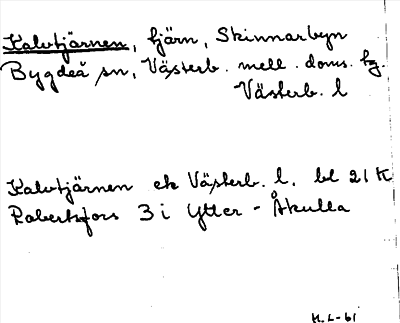 Kalvtjärnen, tjärn, Skinnarbyn
Bygdeå sn, Västerb. mell. doms. tg.
Västerb. l
Kalvtjärnen ek Västerb. l. bl 21 K
Robertsfors 3 i Ytter-Åkulla
H.L-61